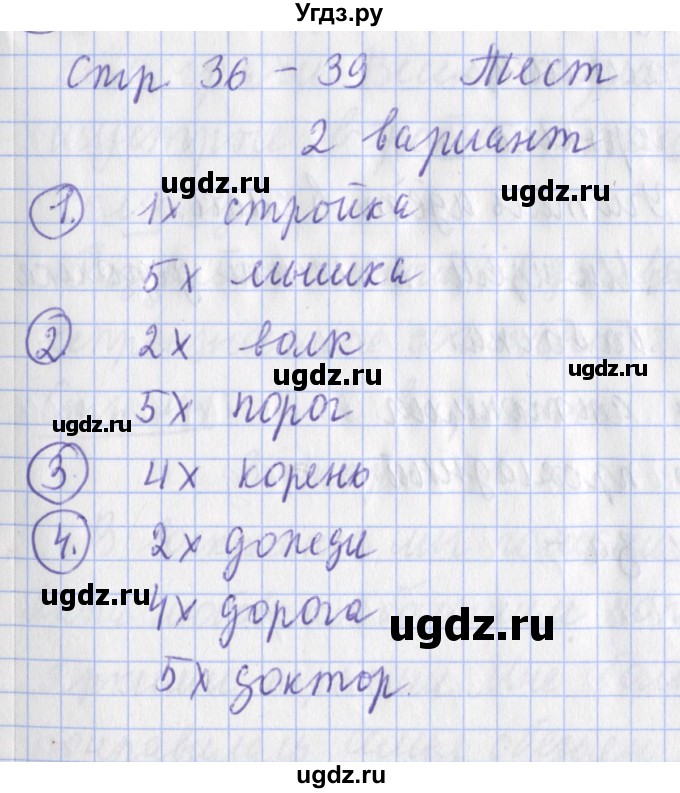 Угдз.ру
Стр. 36 - 39 Тест
2 вариант
ugdz.ru ugdz.ru
1. 1х стройка
5х мышка
2. 2х волк
ugdz.ru ugdz.ru
5х порог
ugdz.ru ugdz.ru
3. 4х корень
4. 2х дожди
ugdz.ru
4х дорога
ugdz.ru
5х доктор.
ugdz.ru